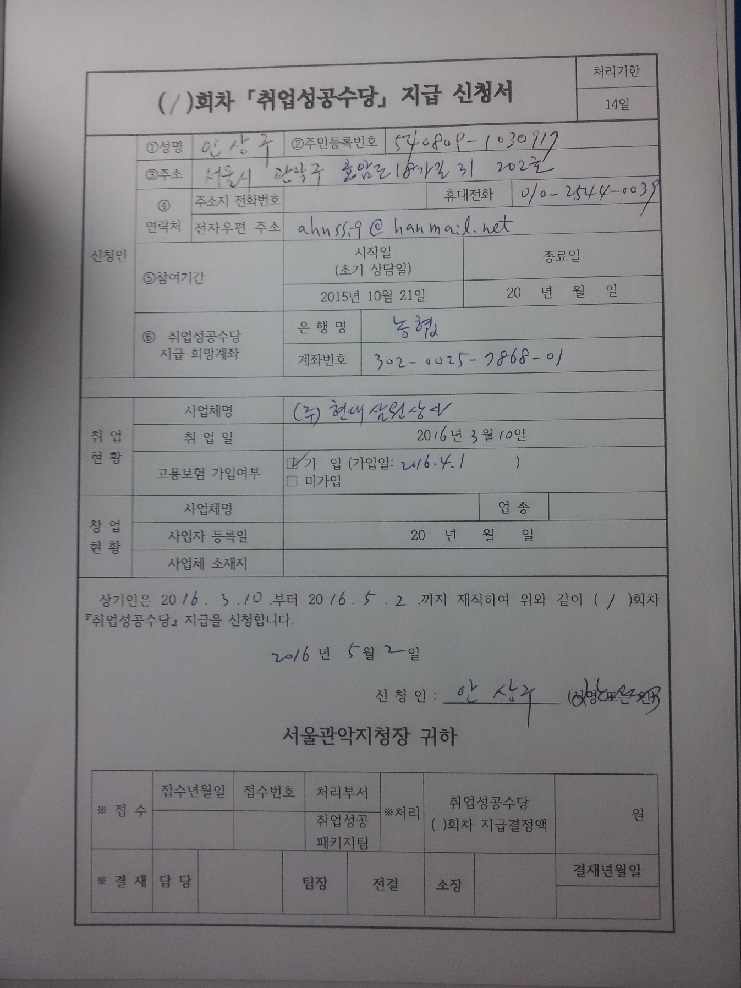 ( / )회차 「취업성공수당」 지급 신청서
처리기한
14일
신청인
①성명 안상주 ②주민등록번호 540809-1030917
③주소 서울시 관악구 호암로18가길 31 202호
④ 연락처 주소지 전화번호 휴대전화 010-2544-0039
전자우편 주소 ahnssj9@hanmail.net
⑤참여기간
시작일 (초기 상담일) 종료일
2015년 10월 21일 20 년 월 일
⑥ 취업성공수당 지급 희망계좌
은 행 명 농협
계좌번호 302-0025-7868-01
취 업 현 황
사업체명 (주)현대삼원상사
취 업 일 2016년 3월 10일
고용보험 가입여부
가 입 (가입일: 2016.4.1 )
□ 미가입
창 업 현 황
사업체명 업 종
사업자 등록일 20 년 월 일
사업체 소재지
상기인은 2016.3.10.부터 2016.5.2.까지 재직하여 위와 같이 ( / )회차
『취업성공수당』 지급을 신청합니다.
2016년 5월 2일
신 청 인 : 안 상주
서울관악지청장 귀하
※ 접 수 접수년월일 접수번호 처리부서 ※처리 취업성공수당 ( )회차 지급결정액 원
취업성공 패키지팀
※ 결 재 담 당 팀장 전결 소장 결재년월일